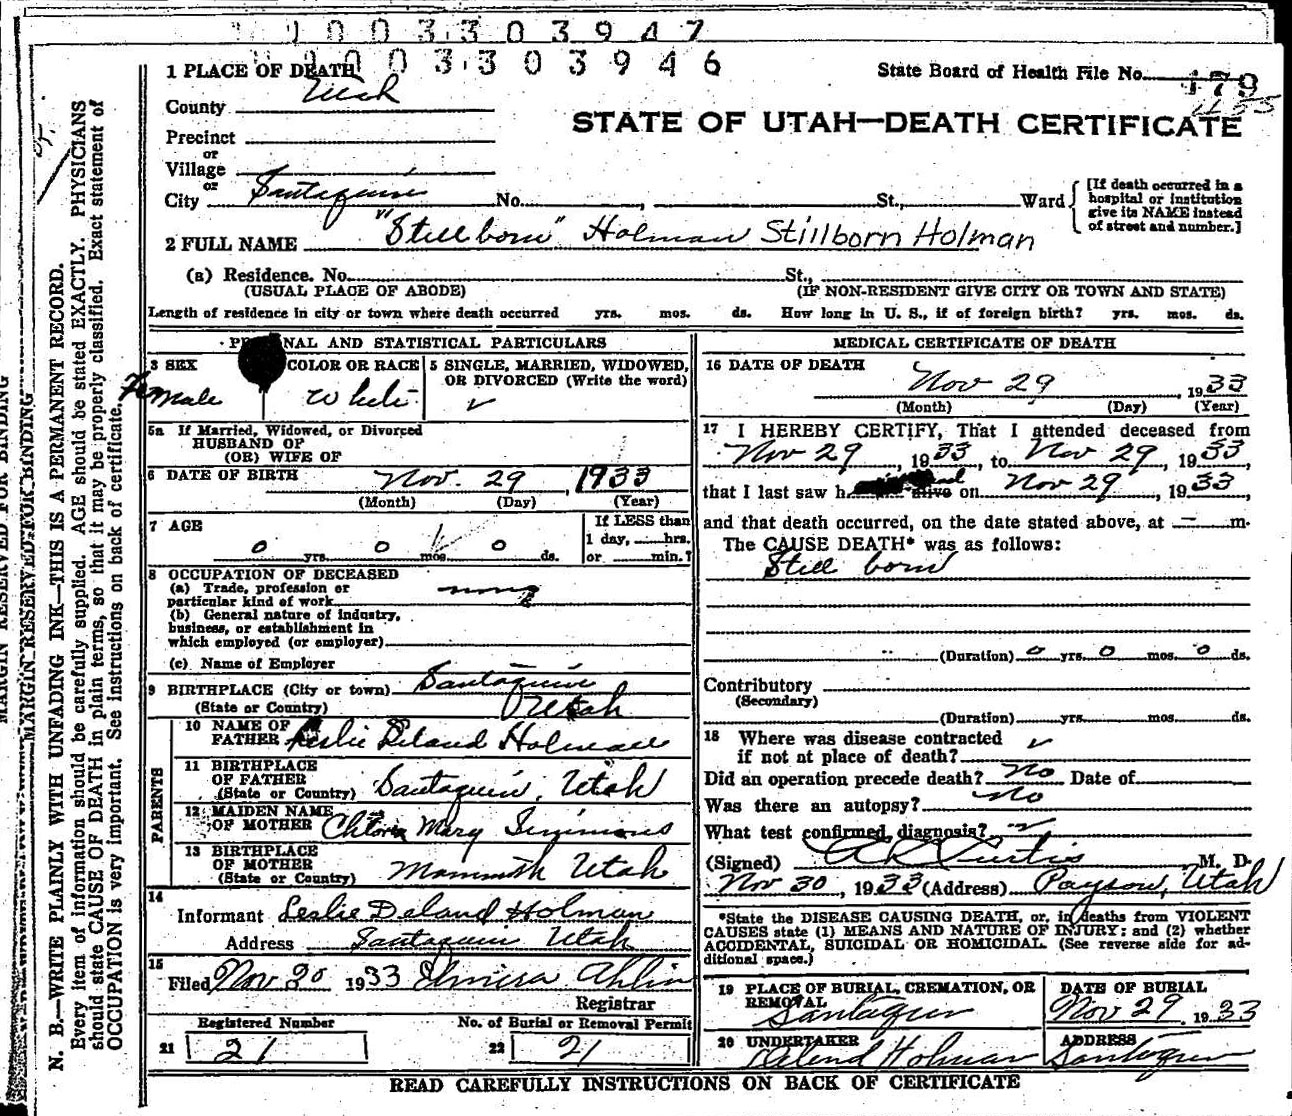 1003303947
1003303946
1 PLACE OF DEATH
State Board of Health File No. 179
County Utah
STATE OF UTAH—DEATH CERTIFICATE
Precinct
or
Village
or
City Santaquin No. , St., Ward
[If death occurred in a
hospital or institution
give its NAME instead
of street and number.]
2 FULL NAME "Stillborn" Holman Stillborn Holman
(a) Residence. No. St.,
(USUAL PLACE OF ABODE) (IF NON-RESIDENT GIVE CITY OR TOWN AND STATE)
Length of residence in city or town where death occurred yrs. mos. ds. How long in U. S., if of foreign birth? yrs. mos. ds.
PERSONAL AND STATISTICAL PARTICULARS
3 SEX COLOR OR RACE 5 SINGLE, MARRIED, WIDOWED,
OR DIVORCED (Write the word)
Female White
5a If Married, Widowed, or Divorced
HUSBAND OF
(OR) WIFE OF
6 DATE OF BIRTH Nov. 29, 1933
(Month) (Day) (Year)
7 AGE
0 yrs. 0 mos. 0 ds.
If LESS than
1 day, hrs.
or min.?
8 OCCUPATION OF DECEASED
(a) Trade, profession or
particular kind of work none
(b) General nature of industry,
business, or establishment in
which employed (or employer)
(c) Name of Employer
9 BIRTHPLACE (City or town) Santaquin
(State or Country) Utah
PARENTS
10 NAME OF
FATHER Leslie Deland Holman
11 BIRTHPLACE
OF FATHER
(State or Country) Santaquin, Utah
12 MAIDEN NAME
OF MOTHER Mary Simmons
13 BIRTHPLACE
OF MOTHER
(State or Country) Mammoth Utah
14
Informant Leslie Deland Holman
Address Santaquin Utah
15
Filed Nov 30 1933 Ahlin
Registrar
Registered Number No. of Burial or Removal Permit
21 21 22 21
MEDICAL CERTIFICATE OF DEATH
16 DATE OF DEATH
Nov 29, 1933
(Month) (Day) (Year)
17 I HEREBY CERTIFY, That I attended deceased from
Nov 29, 1933, to Nov 29, 1933,
that I last saw h alive on Nov 29, 1933,
and that death occurred, on the date stated above, at — m.
The CAUSE DEATH* was as follows:
Still born
(Duration) 0 yrs. 0 mos. 0 ds.
Contributory
(Secondary)
(Duration) yrs. mos. ds.
18 Where was disease contracted
if not at place of death?
Did an operation precede death? No Date of
Was there an autopsy? No
What test confirmed diagnosis?
(Signed) Curtis, M. D.
Nov 30, 1933 (Address) Payson, Utah
*State the DISEASE CAUSING DEATH, or, in deaths from VIOLENT
CAUSES state (1) MEANS AND NATURE OF INJURY; and (2) whether
ACCIDENTAL, SUICIDAL OR HOMICIDAL. (See reverse side for ad-
ditional space.)
19 PLACE OF BURIAL, CREMATION, OR
REMOVAL
Santaquin
DATE OF BURIAL
Nov 29, 1933
20 UNDERTAKER
Holman
ADDRESS
Santaquin
READ CAREFULLY INSTRUCTIONS ON BACK OF CERTIFICATE
MARGIN RESERVED FOR BINDING
MARGIN RESERVED FOR BINDING
N. B.—WRITE PLAINLY WITH UNFADING INK—THIS IS A PERMANENT RECORD.
Every item of information should be carefully supplied. AGE should be stated EXACTLY. PHYSICIANS
should state CAUSE OF DEATH in plain terms, so that it may be properly classified. Exact statement of
OCCUPATION is very important. See instructions on back of certificate.